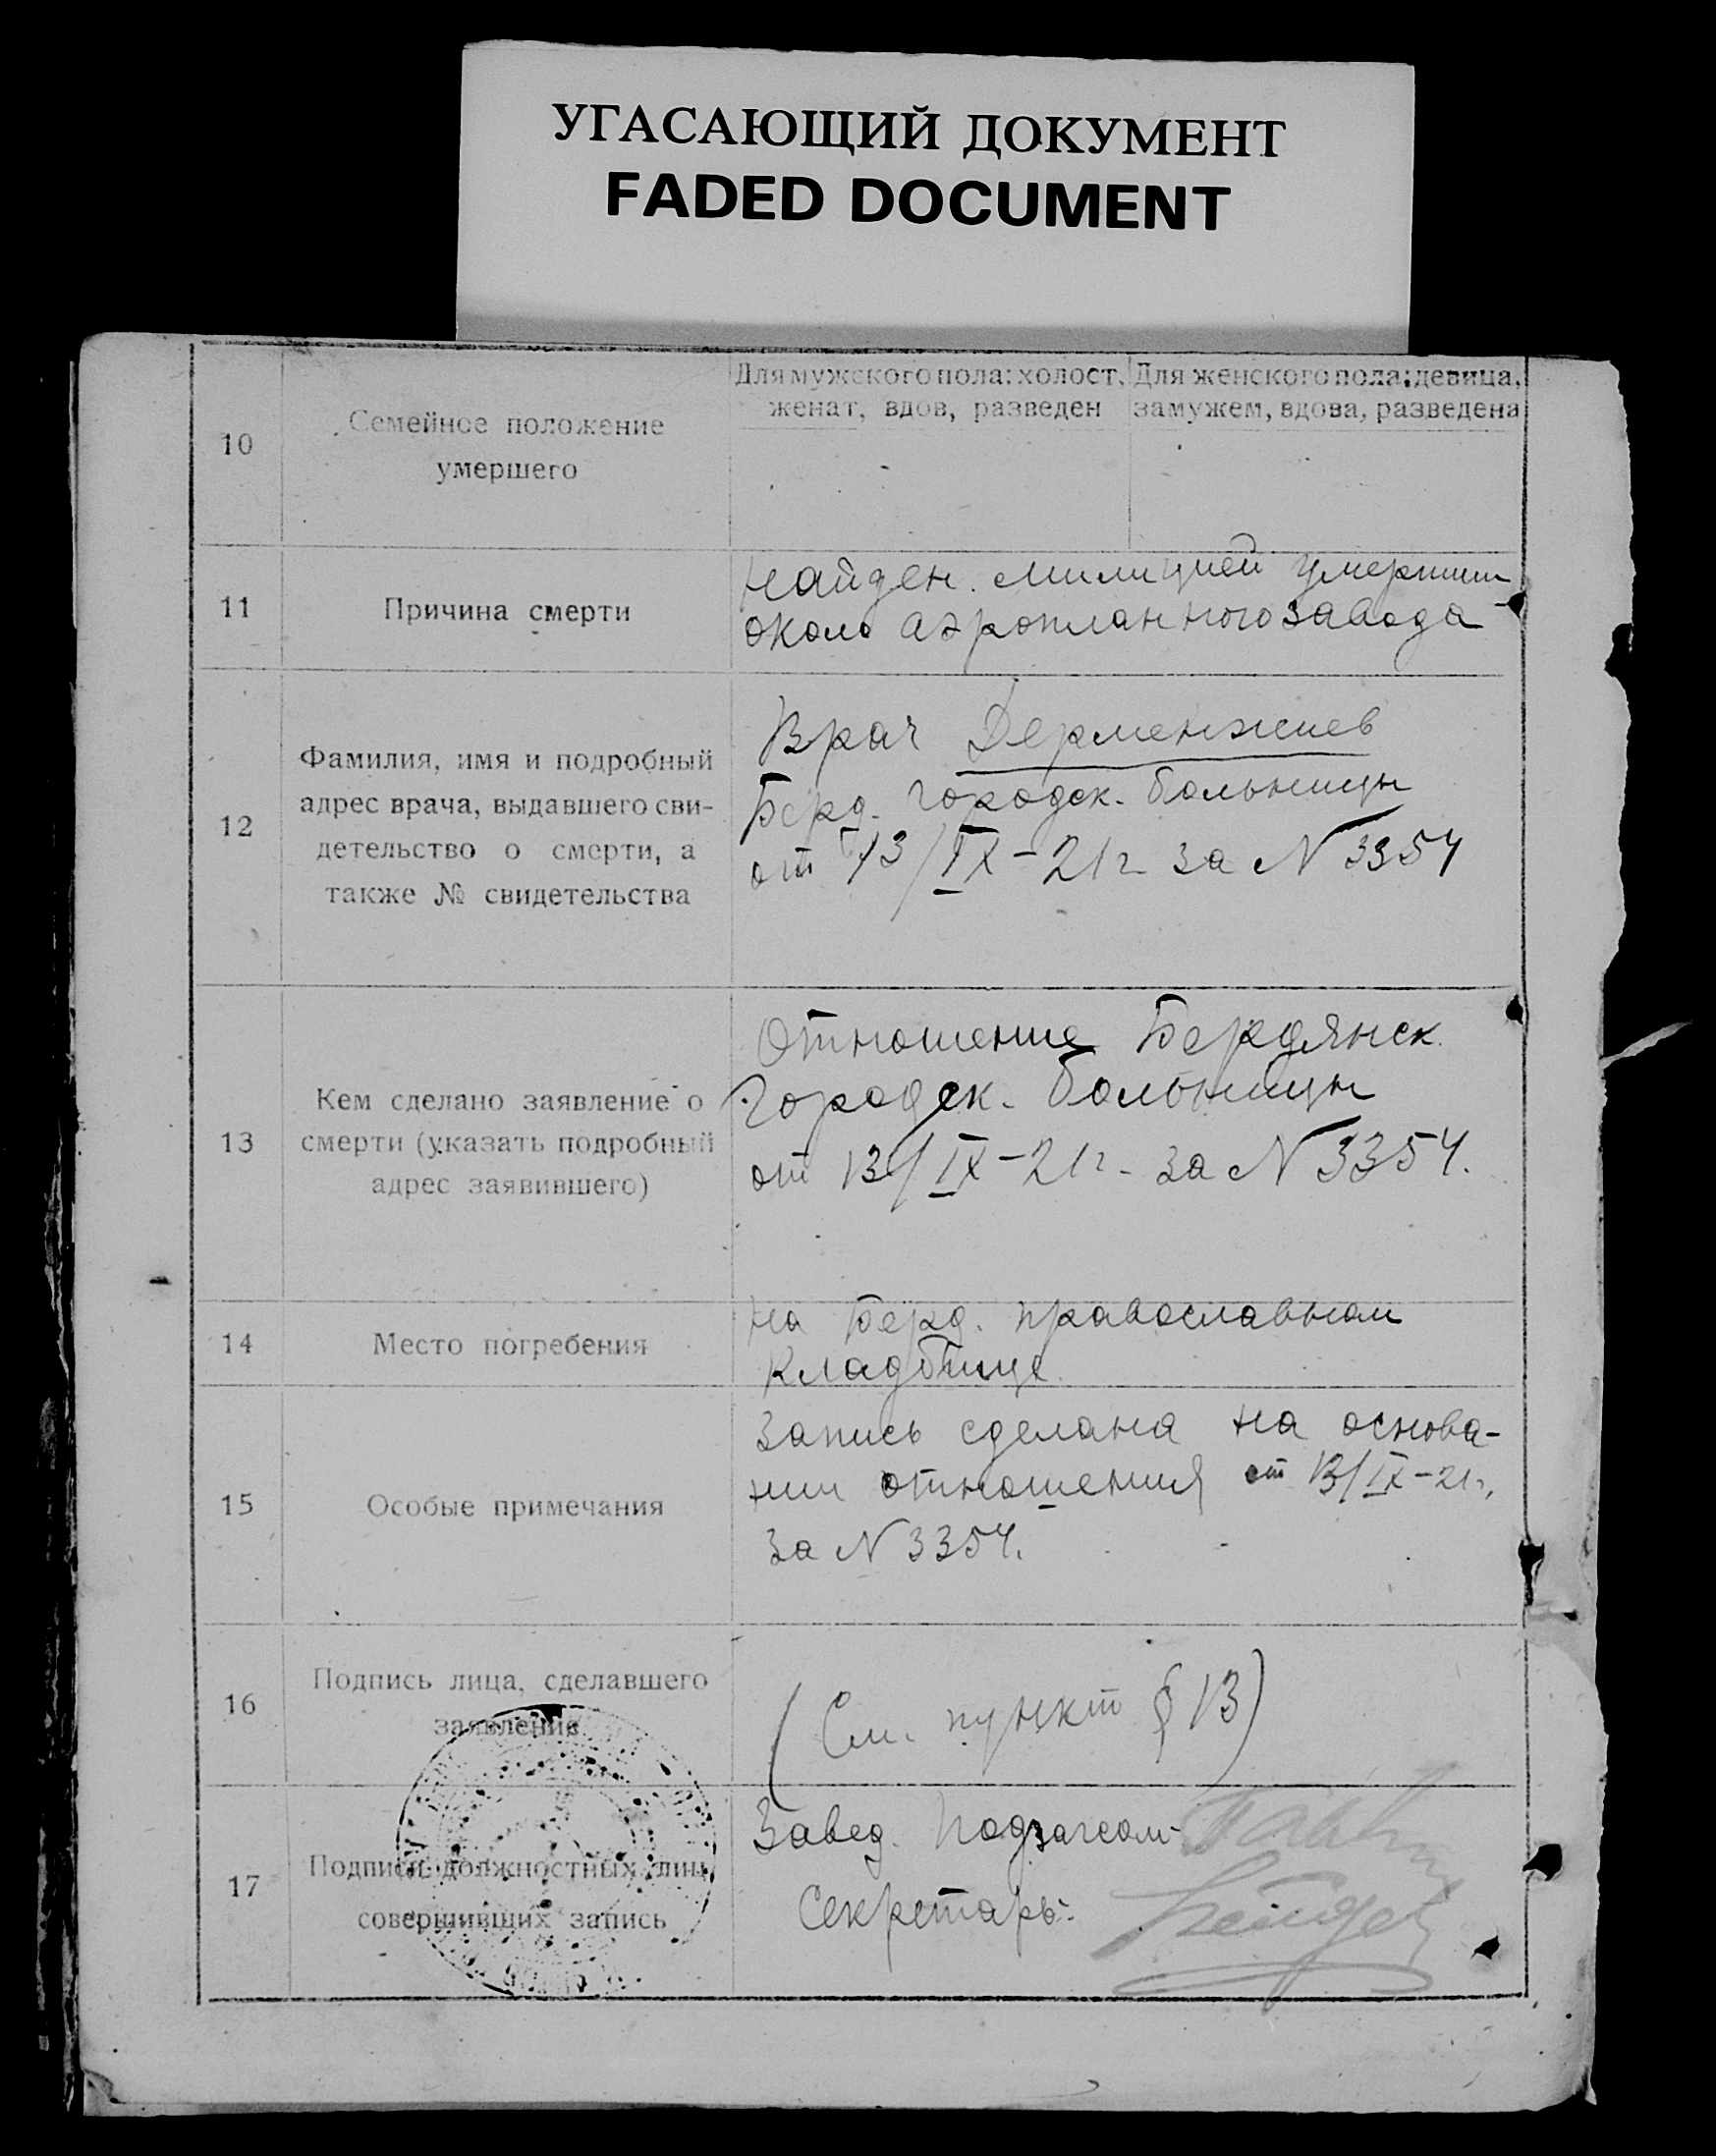 УГАСАЮЩИЙ ДОКУМЕНТ
FADED DOCUMENT
10
Семейное положение
умершего
Для мужского пола: холост,
женат, вдов, разведен
Для женского пола: девица,
замужем, вдова, разведена
11
Причина смерти
Найден. милицией умершим
около аэропланного завода
12
Фамилия, имя и подробный
адрес врача, выдавшего сви-
детельство о смерти, а
также № свидетельства
Врач Дерменжиев
Берд. городск. больницы
от 13/IX-21г за N 3354
13
Кем сделано заявление о
смерти (указать подробный
адрес заявившего)
Отношение Бердянск.
Городск. больницы
от 13/IX-21г. за N 3354.
14
Место погребения
на Берд. православном
кладбище
15
Особые примечания
Запись сделана на основа-
нии отношения от 13/IX-21г,
за N 3354.
16
Подпись лица, сделавшего
заявление
(См. пункт § 13)
17
Подписи должностных лиц,
совершивших запись
Завед. Подзагсом
Секретарь: